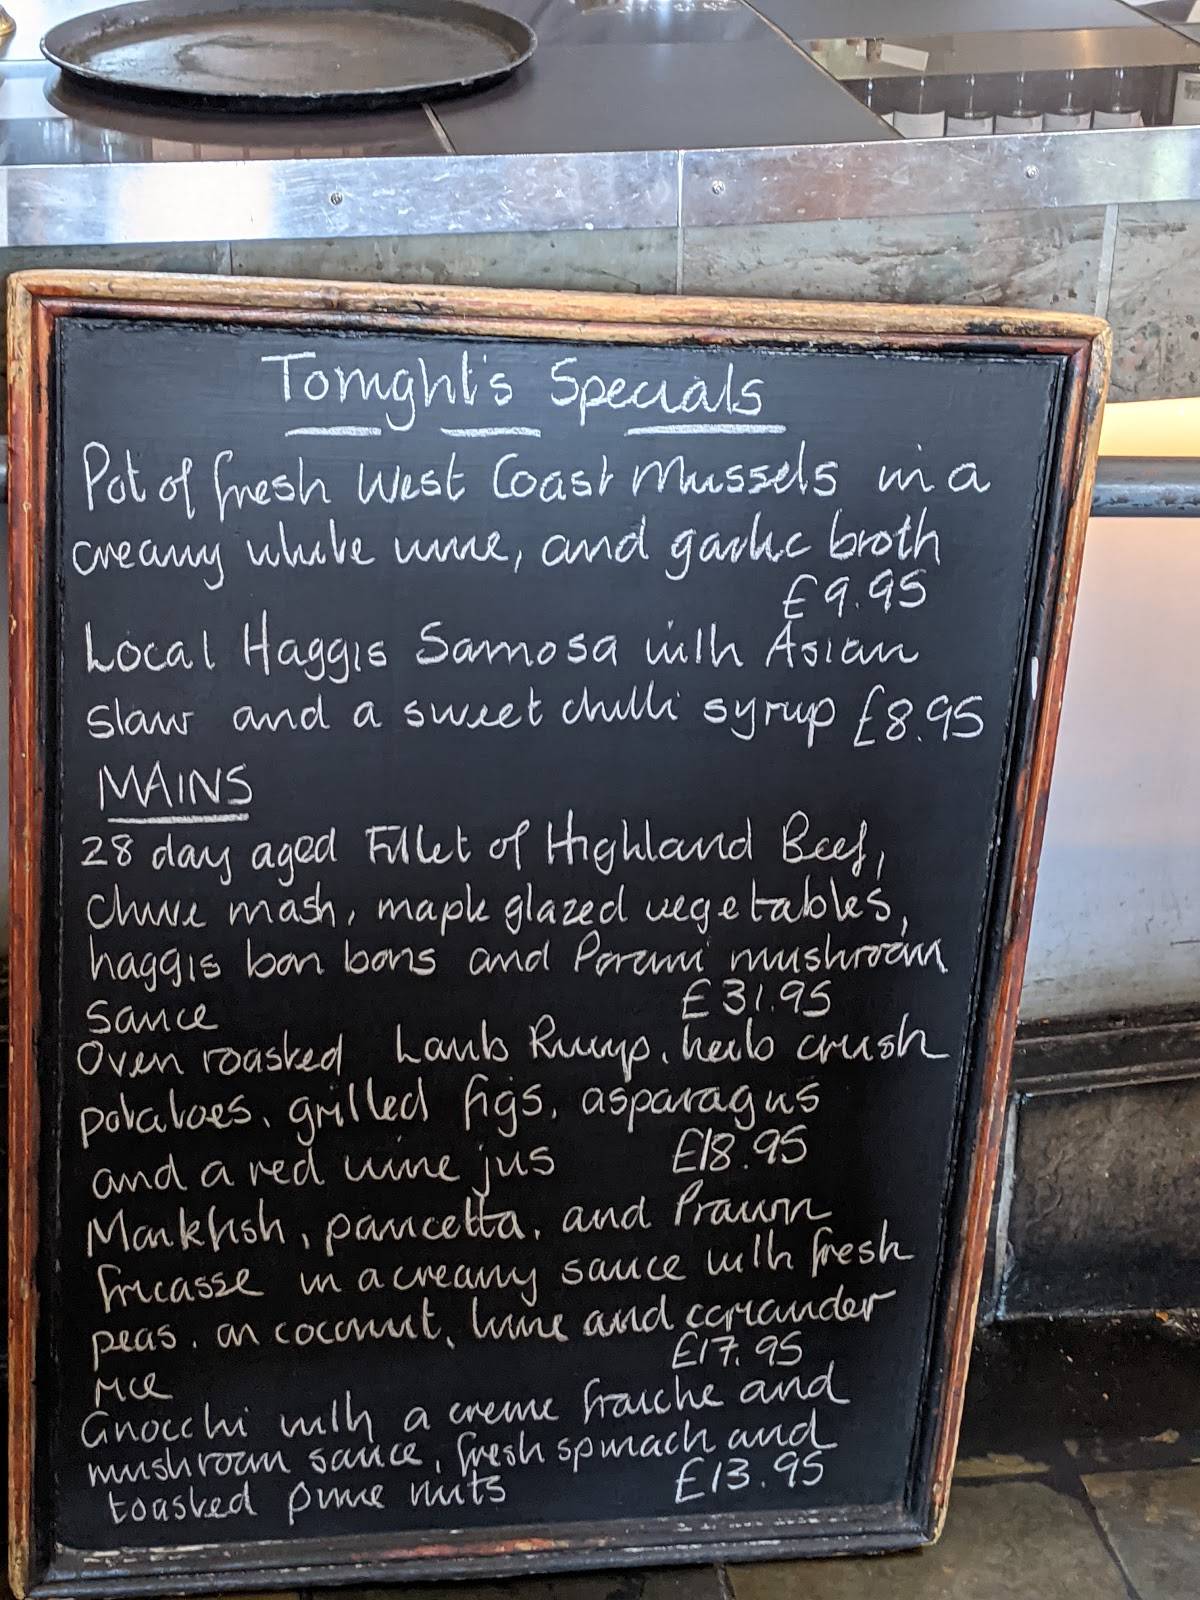 Tonight's Specials
Pot of fresh West Coast Mussels in a
creamy white wine, and garlic broth
£9.95
Local Haggis Samosa with Asian
slaw and a sweet chilli syrup £8.95
MAINS
28 day aged Fillet of Highland Beef,
Chive mash, maple glazed vegetables,
haggis bon bons and Porcini mushroom
Sauce £31.95
Oven roasted Lamb Rump, herb crush
potatoes, grilled figs, asparagus
and a red wine jus £18.95
Monkfish, pancetta, and Prawn
fricasse in a creamy sauce with fresh
peas, on coconut, lime and coriander
rice £17.95
Gnocchi with a creme fraiche and
mushroom sauce, fresh spinach and
toasted pine nuts £13.95